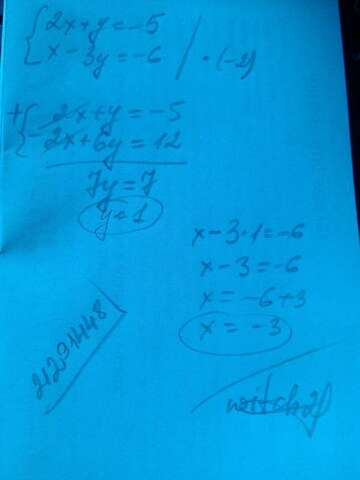 {2x+y=-5
{x-3y=-6 / ·(-2)
+{2x+y=-5
{-2x+6y=12
7y=7
y=1
x-3·1=-6
x-3=-6
x=-6+3
x=-3
21291448